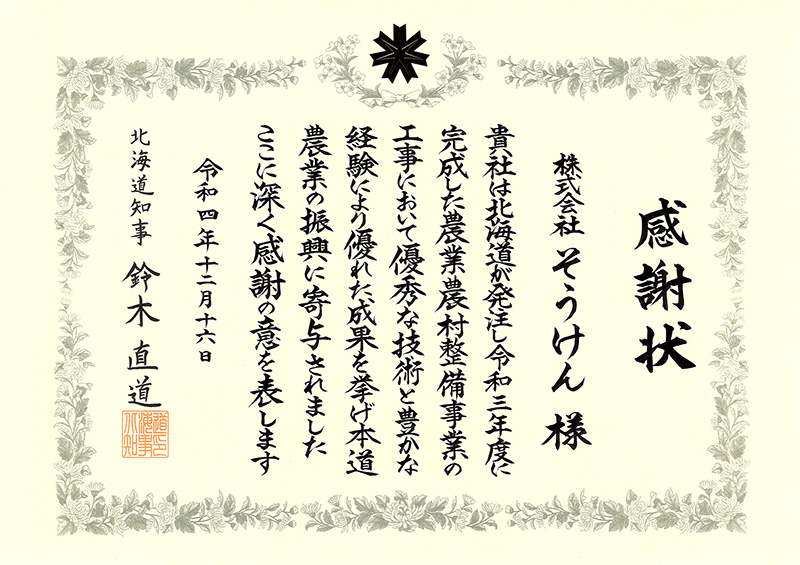 感謝状
株式会社 そうけん 様
貴社は北海道が発注し令和三年度に
完成した農業農村整備事業の
工事において優秀な技術と豊かな
経験により優れた成果を挙げ本道
農業の振興に寄与されました
ここに深く感謝の意を表します
令和四年十二月十六日
北海道知事 鈴木直道